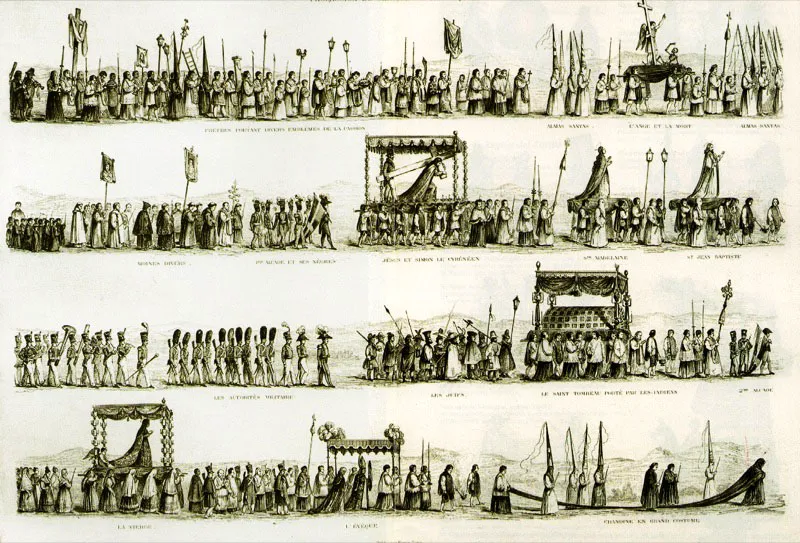 PRÊTRES PORTANT DIVERS EMBLÊMES DE LA PASSION
ALMAS SANTAS.
L'ANGE ET LA MORT
ALMAS SANTAS
MOINES DIVERS.
1er ALCADE ET SES NÈGRES
JÉSUS ET SIMON LE CYRÉNÉEN
Ste MADELAINE
St JEAN BAPTISTE
LES AUTORITÉS MILITAIRE
LES JUIFS
LE SAINT TOMBEAU PORTÉ PAR LES INDIENS
2me ALCADE
LA VIERGE
L'ÉVÊQUE
CHANOINE EN GRAND COSTUME